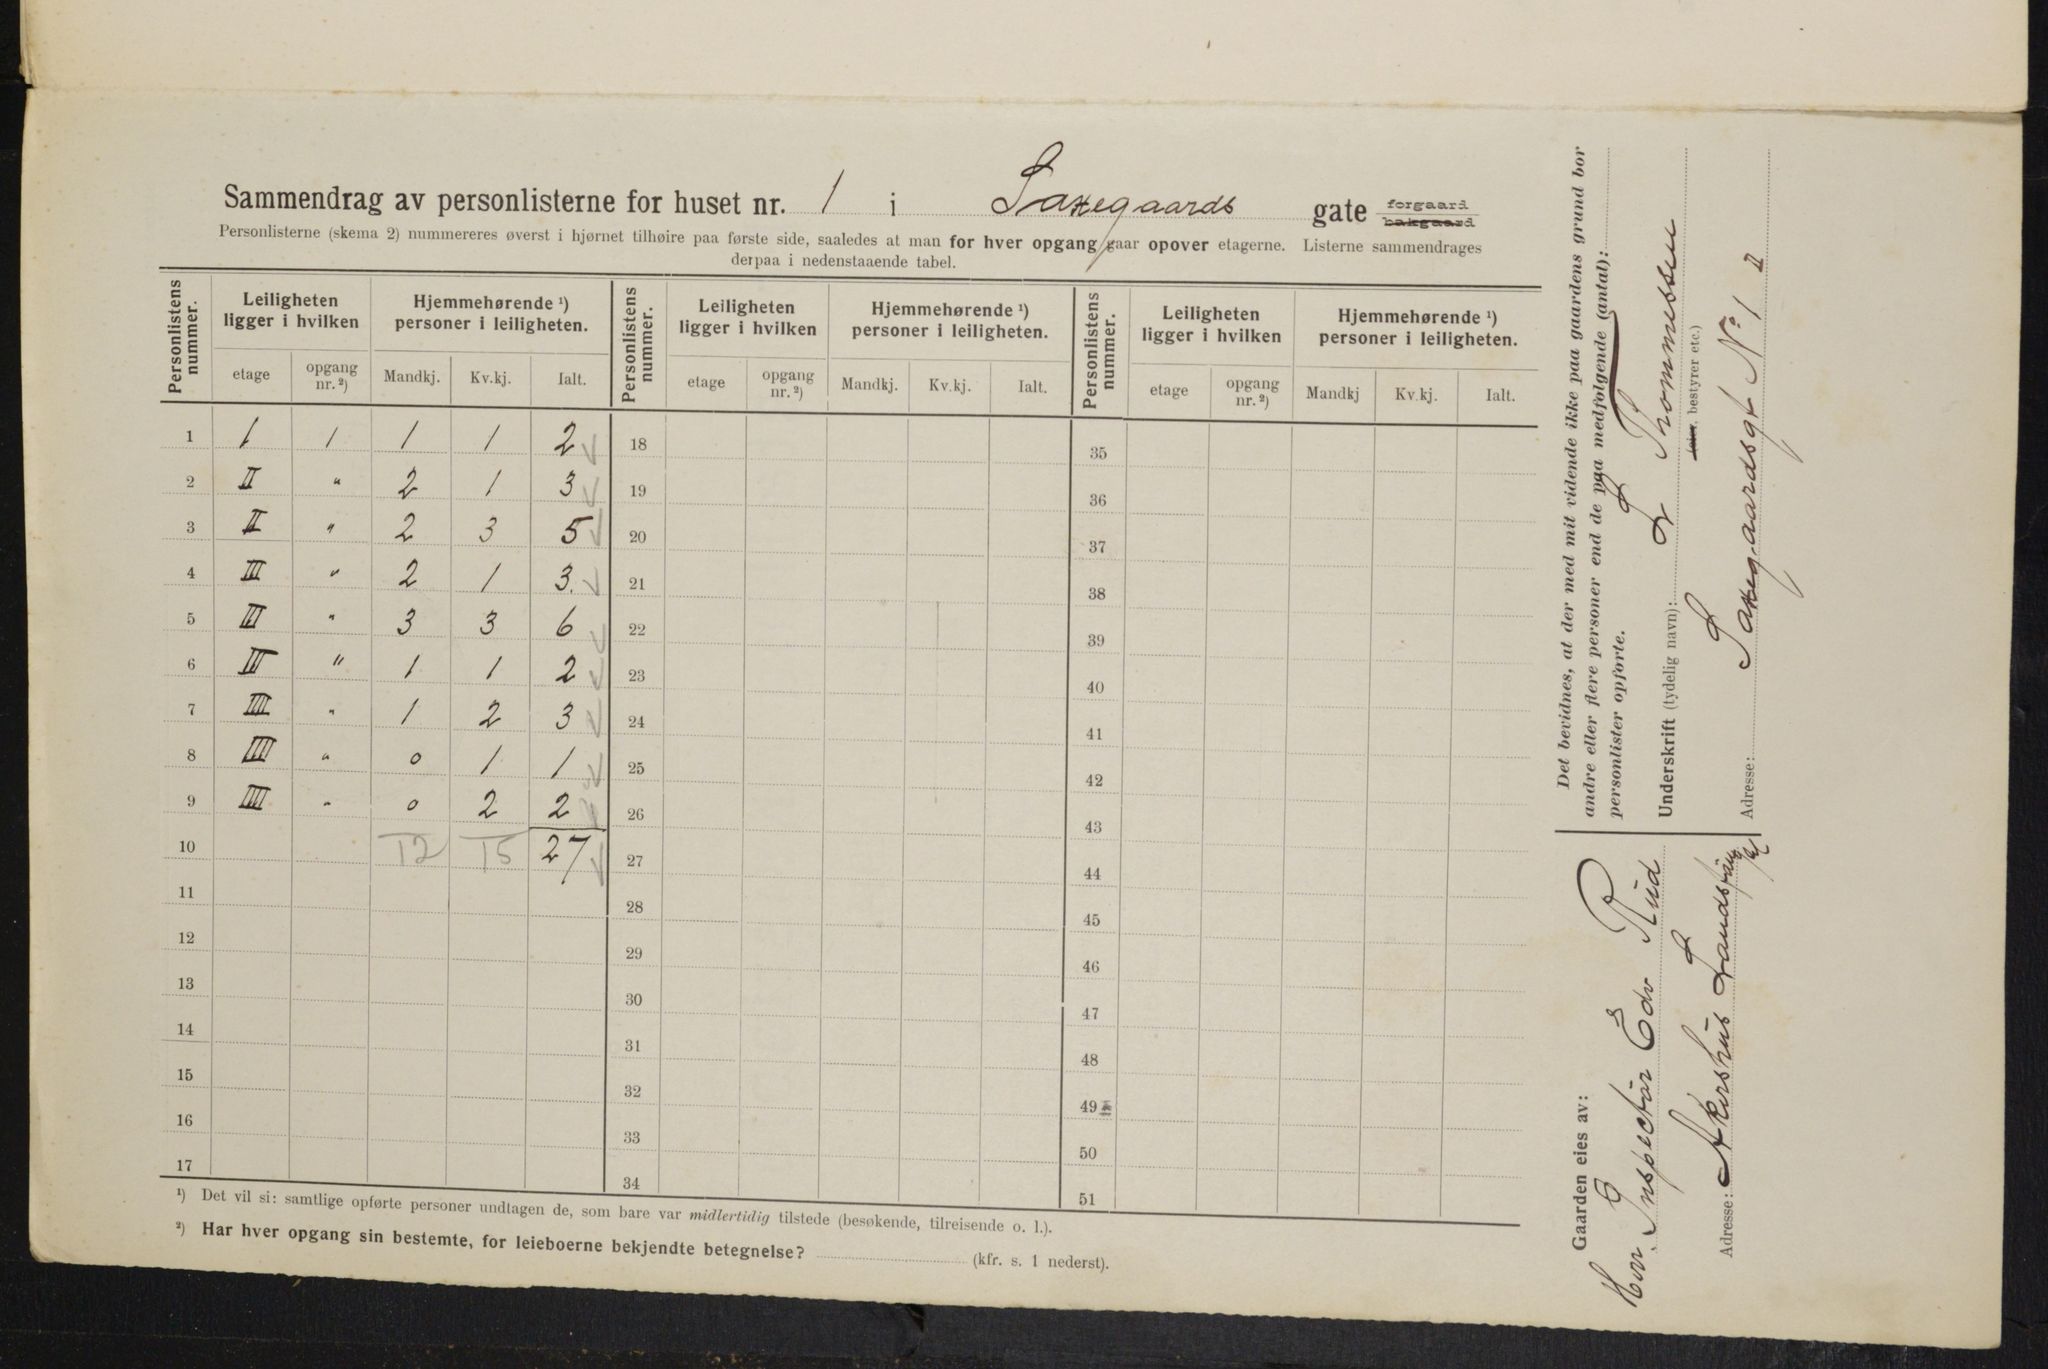 Sammendrag av personlisterne for huset nr. 1 i Saxegaards gate forgaard bakgaard
Personlisterne (skema 2) nummereres øverst i hjørnet tilhøire paa første side, saaledes at man for hver opgang gaar opover etagerne. Listerne sammendrages
derpaa i nedenstaaende tabel.
Personlistens nummer. Leiligheten ligger i hvilken Hjemmehørende ¹) personer i leiligheten. Personlistens nummer. Leiligheten ligger i hvilken Hjemmehørende ¹) personer i leiligheten. Personlistens nummer. Leiligheten ligger i hvilken Hjemmehørende ¹) personer i leiligheten.
etage opgang nr. ²) Mandkj. Kv.kj. Ialt. etage opgang nr. ²) Mandkj. Kv.kj. Ialt. etage opgang nr. ²) Mandkj Kv.kj. Ialt.
1 1 1 1 1 2 18 35
2 II " 2 1 3 19 36
3 II " 2 3 5 20 37
4 III " 2 1 3. 21 38
5 III " 3 3 6 22 39
6 III " 1 1 2 23 40
7 IIII " 1 2 3 24 41
8 IIII " 0 1 1 25 42
9 IIII " 0 2 2 26 43
10 12 15 27 27 44
11 28 45
12 29 46
13 30 47
14 31 48
15 32 49
16 33 50
17 34 51
¹) Det vil si: samtlige opførte personer undtagen de, som bare var midlertidig tilstede (besøkende, tilreisende o. l.).
²) Har hver opgang sin bestemte, for leieboerne bekjendte betegnelse? (kfr. s. 1 nederst).
Det bevidnes, at der med mit vidende ikke paa gaardens grund bor
andre eller flere personer end de paa medfølgende (antal):
personlister opførte.
Underskrift (tydelig navn): L Thommessen
eier, bestyrer etc.)
Adresse: Saxegaardsgt No 1 II
Gaarden eies av:
Herr. Inspectür Edv Rüd
Adresse: Akershüs